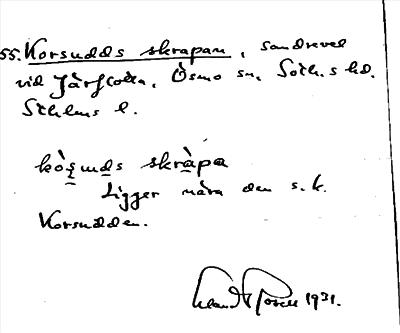 55. Korsudds skrapan, sandrevel
vid Järflotta, Ösmo sn, Soth.s hd.
Sthlms l.
kòṣuṇḍs skràpa
Ligger nära den s.k.
Korsudden.
1931.